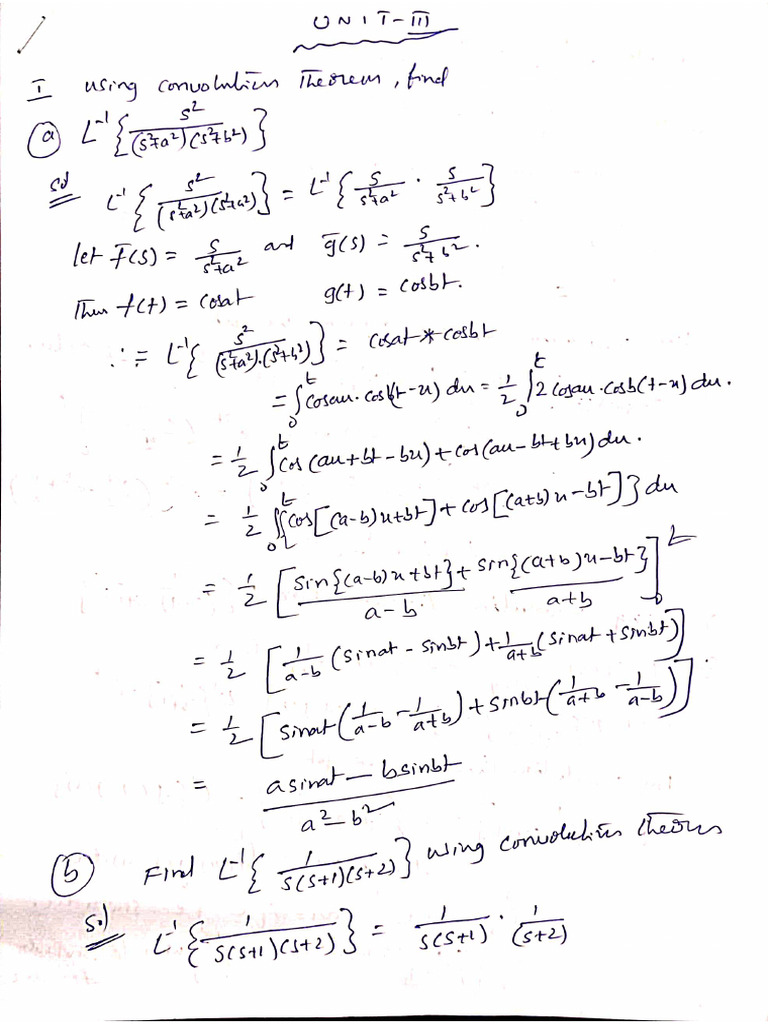 UNIT-III
I using convolution Theorem, find
(a) L⁻¹{s²/((s²+a²)(s²+b²))}
Sol
L⁻¹{s²/((s²+a²)(s²+a²))} = L⁻¹{s/(s²+a²) · s/(s²+b²)}
let f̄(s) = s/(s²+a²) and ḡ(s) = s/(s²+b²).
Then f(t) = cosat g(t) = cosbt.
∴ = L⁻¹{s²/((s²+a²)·(s²+b²))} = cosat * cosbt
= ∫₀ᵗ cosau·cosb(t-u) du = 1/2 ∫₀ᵗ 2 cosau·cosb(t-u) du.
= 1/2 ∫₀ᵗ cos(au+bt-bu) + cos(au-bt+bu) du.
= 1/2 ∫₀ᵗ {cos[(a-b)u+bt] + cos[(a+b)u-bt]} du
= 1/2 [sin{(a-b)u+bt}/(a-b) + sin{(a+b)u-bt}/(a+b)]₀ᵗ
= 1/2 [1/(a-b) (sinat - sinbt) + 1/(a+b) (sinat + sinbt)]
= 1/2 [sinat(1/(a-b) - 1/(a+b)) + sinbt(1/(a+b) - 1/(a-b))].
= (a sinat - b sinbt)/(a²-b²)
(b) Find L⁻¹{1/(s(s+1)(s+2))} using convolution theorem
Sol
L⁻¹{1/(s(s+1)(s+2))} = 1/(s(s+1)) · 1/(s+2)